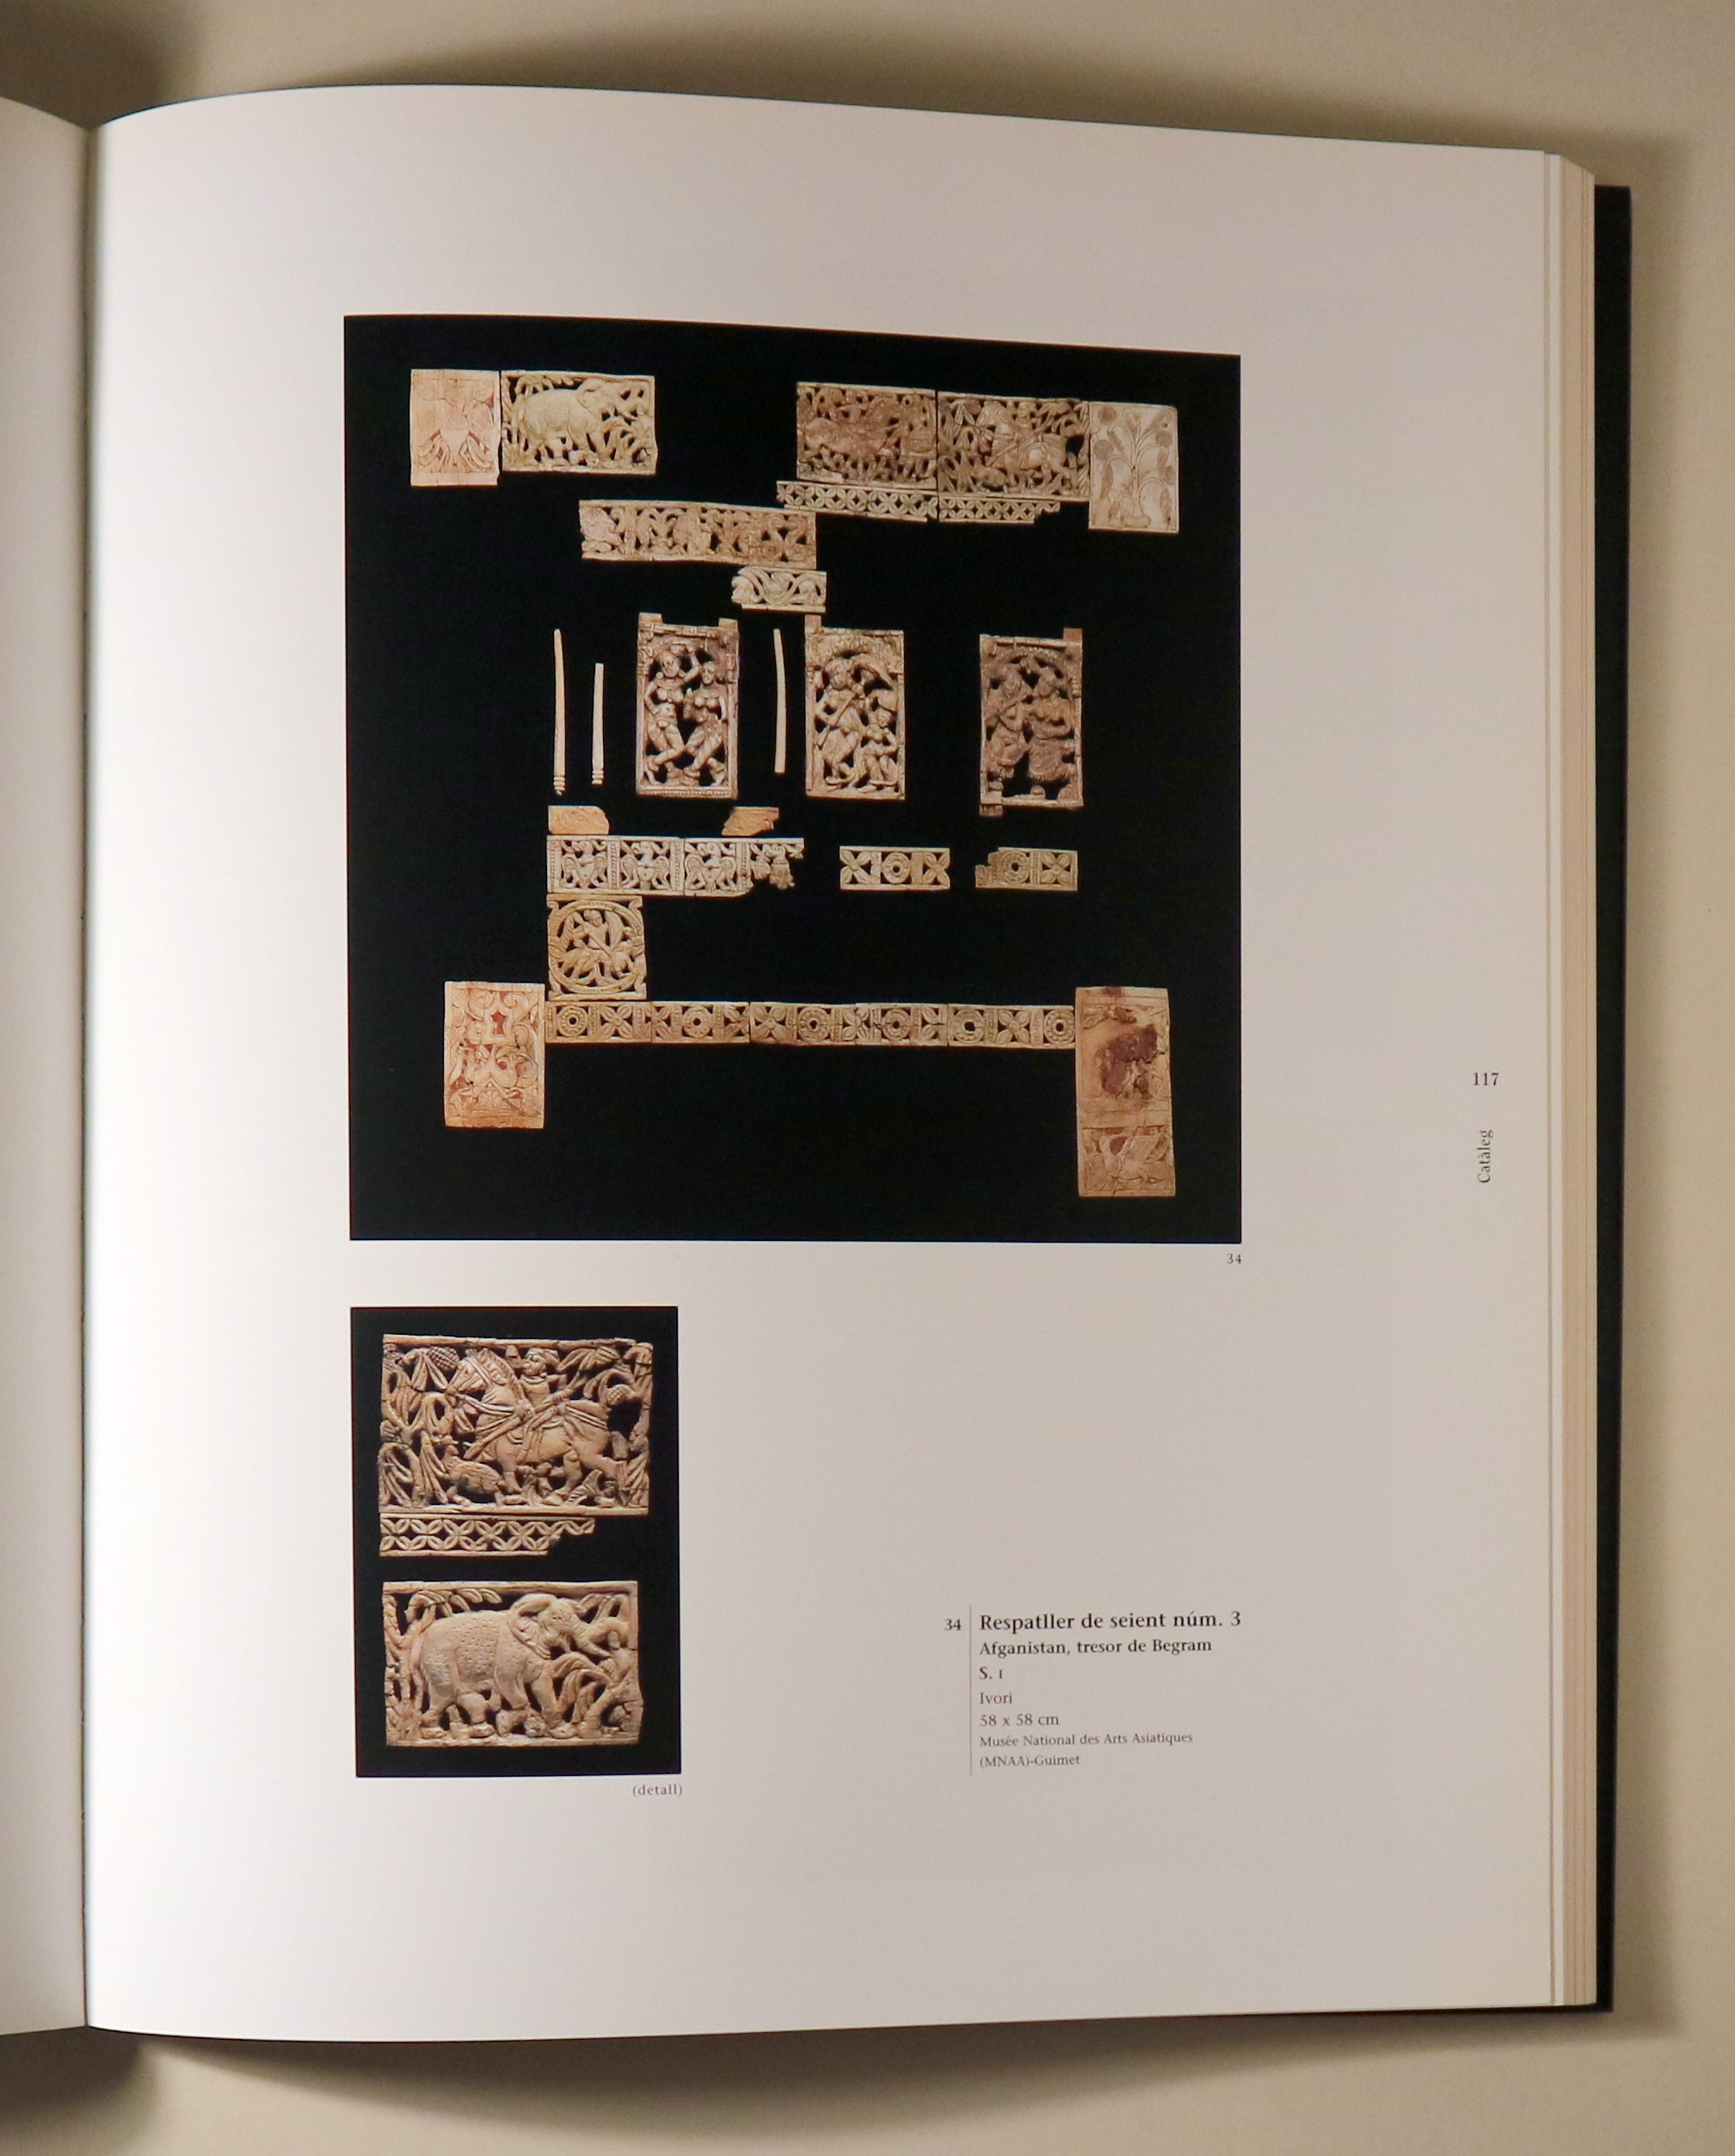 34
(detall)
34 Respatller de seient núm. 3
Afganistan, tresor de Begram
S. I
Ivori
58 x 58 cm
Musée National des Arts Asiatiques
(MNAA)-Guimet
117
Catàleg